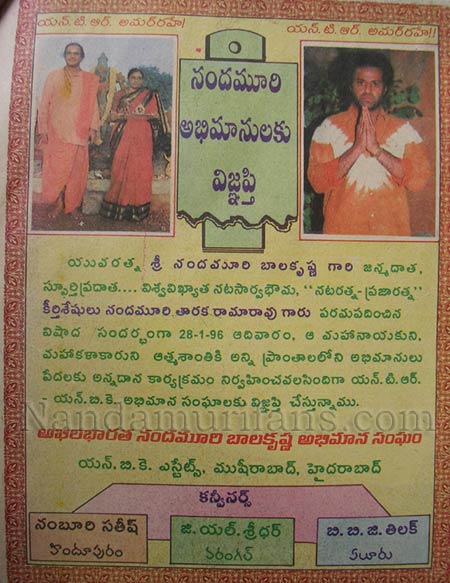 యన్.టి.ఆర్. అమర్‌రహె!
యన్.టి.ఆర్. అమర్‌రహె!!
నందమూరి
అభిమానులకు
విజ్ఞప్తి
యువరత్న శ్రీ నందమూరి బాలకృష్ణ గారి జన్మదాత,
స్ఫూర్తిప్రదాత.... విశ్వవిఖ్యాత నటసార్వభౌమ, "నటరత్న-ప్రజారత్న"
కీర్తిశేషులు నందమూరి తారక రామారావు గారు పరమపదించిన
విషాద సందర్భంగా 28-1-96 ఆదివారం, ఆ మహానాయకుని,
మహాకళాకారుని ఆత్మశాంతికి అన్ని ప్రాంతాలలోని అభిమానులు
పేదలకు అన్నదాన కార్యక్రమం నిర్వహించవలసిందిగా యన్.టి.ఆర్.
- యన్.బి.కె. అభిమాన సంఘాలకు విజ్ఞప్తి చేస్తున్నాము.
Nandamurifans.com
అఖిలభారత నందమూరి బాలకృష్ణ అభిమాన సంఘం
యన్.బి.కె. ఎస్టేట్స్, ముషీరాబాద్, హైదరాబాద్
కన్వీనర్స్
నంబూరి సతీష్
హిందూపురం
జి.యల్.శ్రీధర్
వరంగల్
బి.బి.జి.తిలక్
ఏలూరు